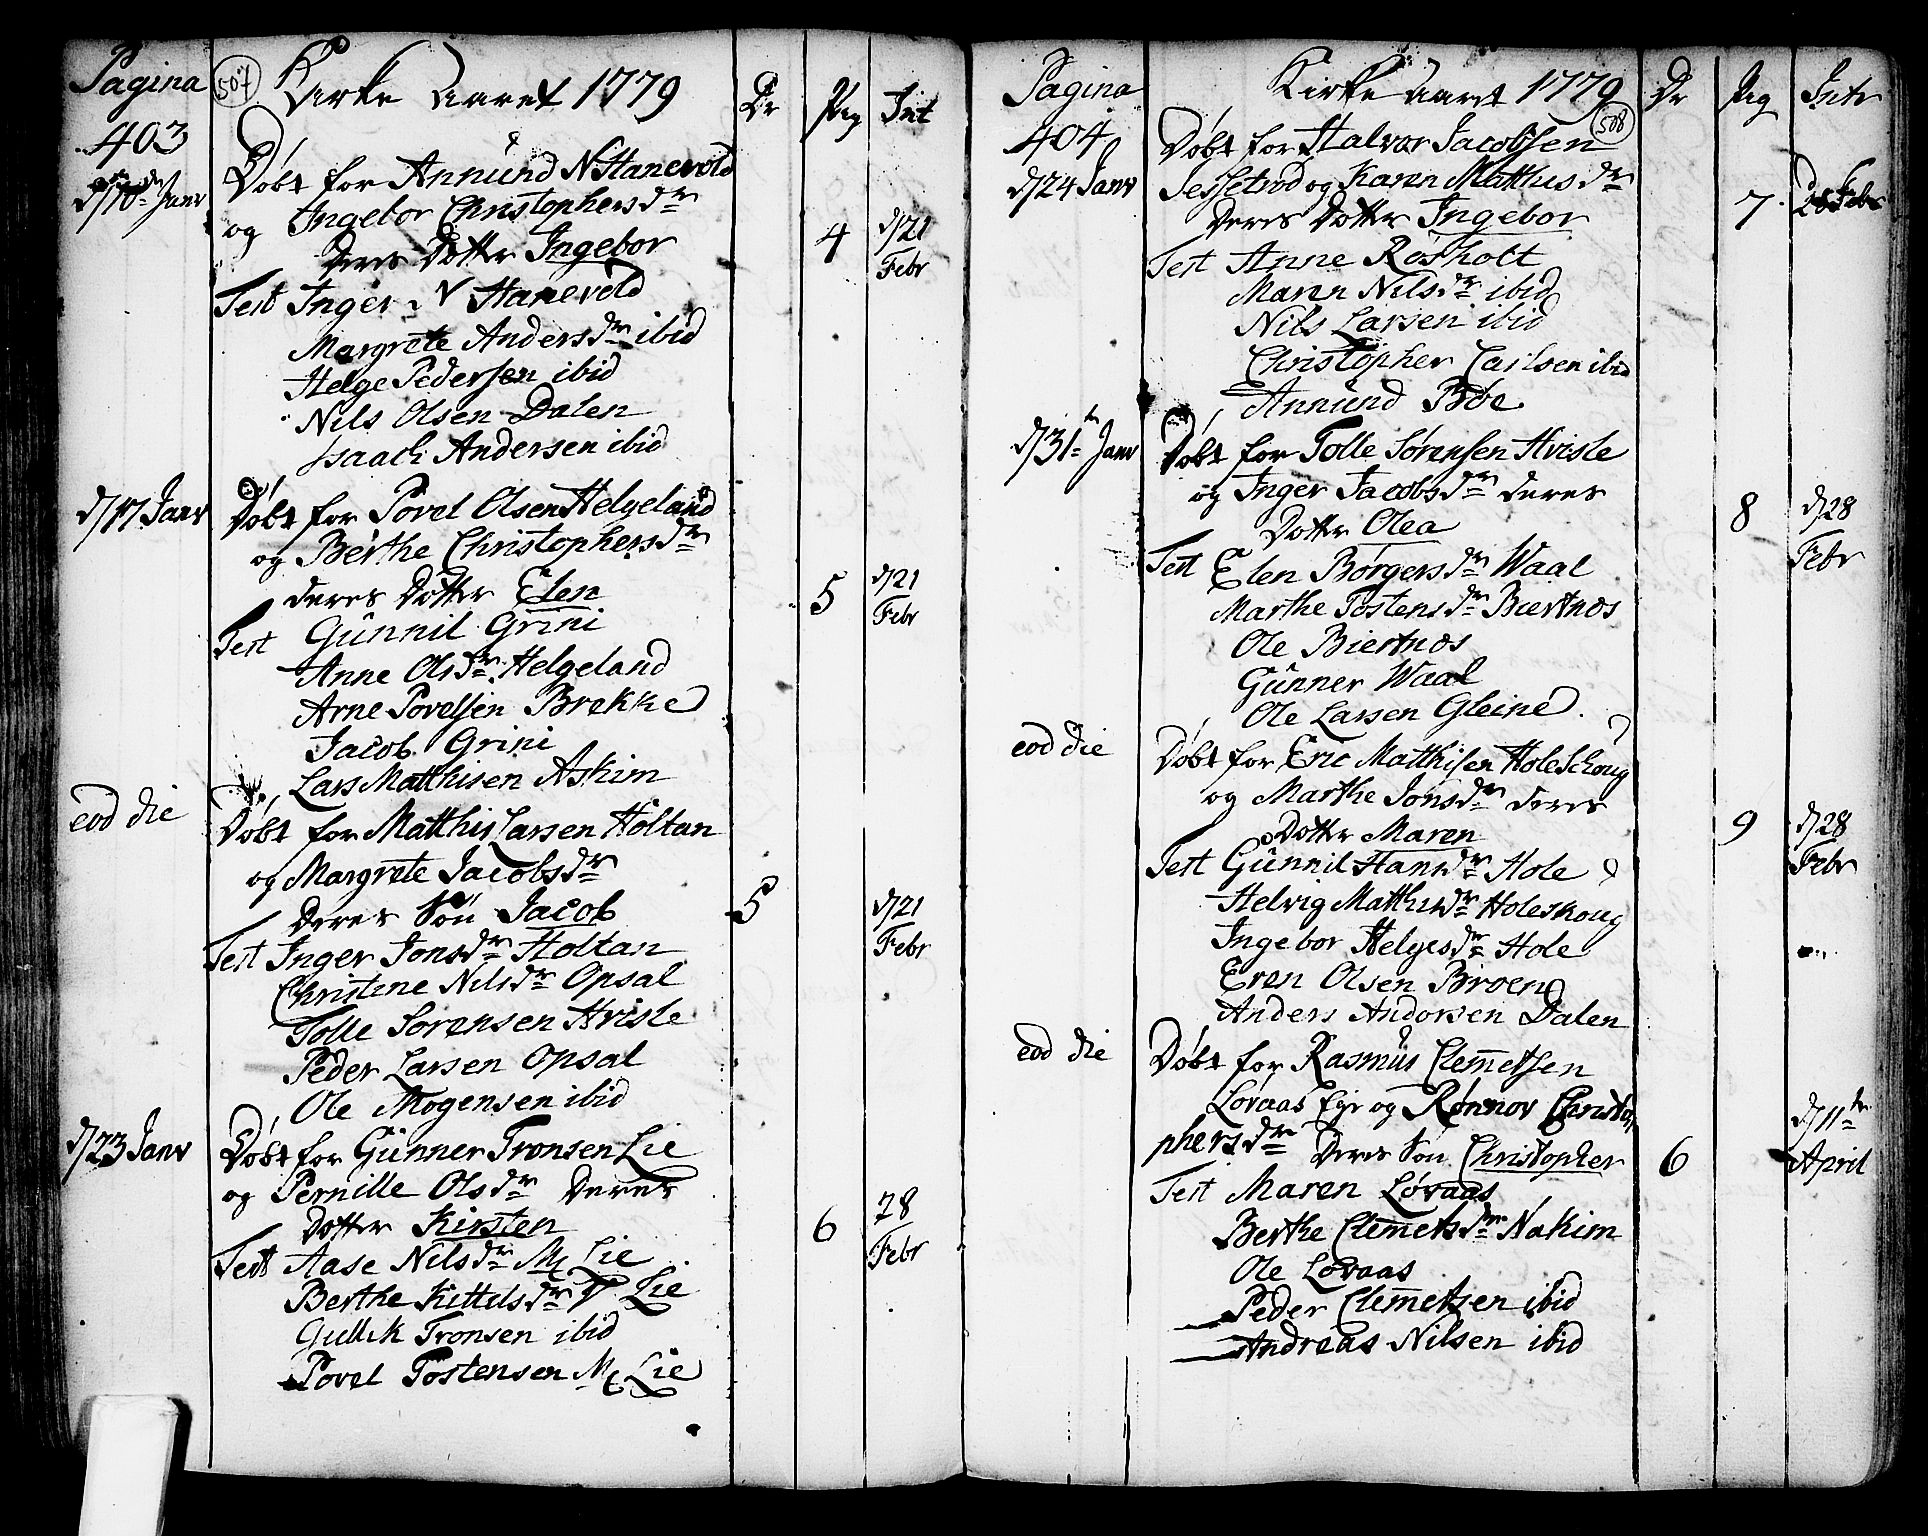 Pagina
403
507
Kirke Aaret 1779
Dr
Pig
Int
d/10de Janv
Døbt for Annund N Stanevold
og Ingebor Christophersdr
Deres Dotter Ingebor
4
d/21
Febr
Test Inger N Stanevold
Margrete Andersdr ibid
Helge Pedersen ibid
Nils Olsen Dalen
Isaach Andersen ibid
d/17 Janv
Døbt for Povel Olsen Helgeland
og Berthe Christophersdr
deres Dotter Elen
5
d/21
Febr
Test Gunnil Grini
Anne Olsdr Helgeland
Arne Povelsen Brekke
Jacob Grini
Lars Matthisen Askim
eod die
Døbt for Matthis Larsen Holtan
og Margrete Jacobsdr
Deres Søn Jacob
5
d/21
Febr
Test Inger Jonsdr Holtan
Christine Nilsdr Opsal
Tolle Sørensen Hvisle
Peder Larsen Opsal
Ole Mogensen ibid
d/23 Janv
Døbt for Gunner Tronsen Lie
og Pernille Olsdr Deres
Dotter Kirsten
6
28
Febr
Test Aase Nilsdr M Lie
Berthe Kittelsdr Lie
Gullik Tronsen ibid
Povel Tostensen M Lie
Pagina
404
Kirke Aaret 1779
508
Dr
Pig
Intr
d/24 Janv
Døbt for Halvor Jacobsen
Jessetrod og Karen Matthisdr
Deres Dotter Ingebor
7
28 Febr
Test Anne Røsholt
Maren Nilsdr ibid
Nils Larsen ibid
Christopher Carlsen ibid
Annund Bøe
d/31te Janv
Døbt for Tolle Sørensen Hvisle
og Inger Jacobsdr deres
Dotter Olea
8
d/28
Febr
Test Elen Børgersdr Waal
Marthe Tostensdr Biertnæs
Ole Biertnæs
Gunner Waal
Ole Larsen Gleine
eod die
Døbt for Eric Matthisen Holeskoug
og Marthe Jonsdr deres
Dotter Maren
9
d/28
Febr
Test Gunnil Hansdr Hole
Helvig Matthisdr Holeskoug
Ingebor Helgesdr Hole
Even Olsen Broen
Anders Andersen Dalen
eod die
Døbt for Rasmus Clemetsen
Løvaas Eje og Rønnov Christo
phersdr Deres Søn Christopher
6
d/11te
April
Test Maren Løvaas
Berthe Clemetsdr Nakim
Ole Løvaas
Peder Clemetsen ibid
Andreas Nilsen ibid